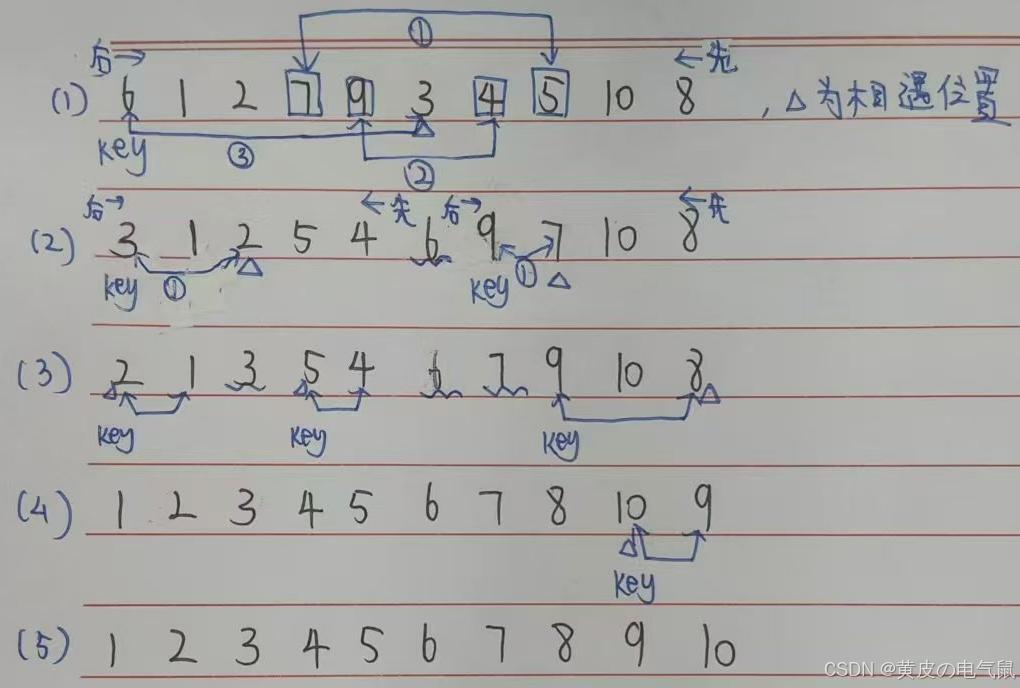 ①
后→ ←先
(1) 6 1 2 7 9 3 4 5 10 8 ,△为相遇位置
key ③ ②
后→ ←先 后→ ←先
(2) 3 1 2 5 4 6 9 7 10 8
key ① △ key ① △
(3) 2 1 3 5 4 6 7 9 10 8
key key key
(4) 1 2 3 4 5 6 7 8 10 9
key
(5) 1 2 3 4 5 6 7 8 9 10
CSDN @黄皮の电气鼠